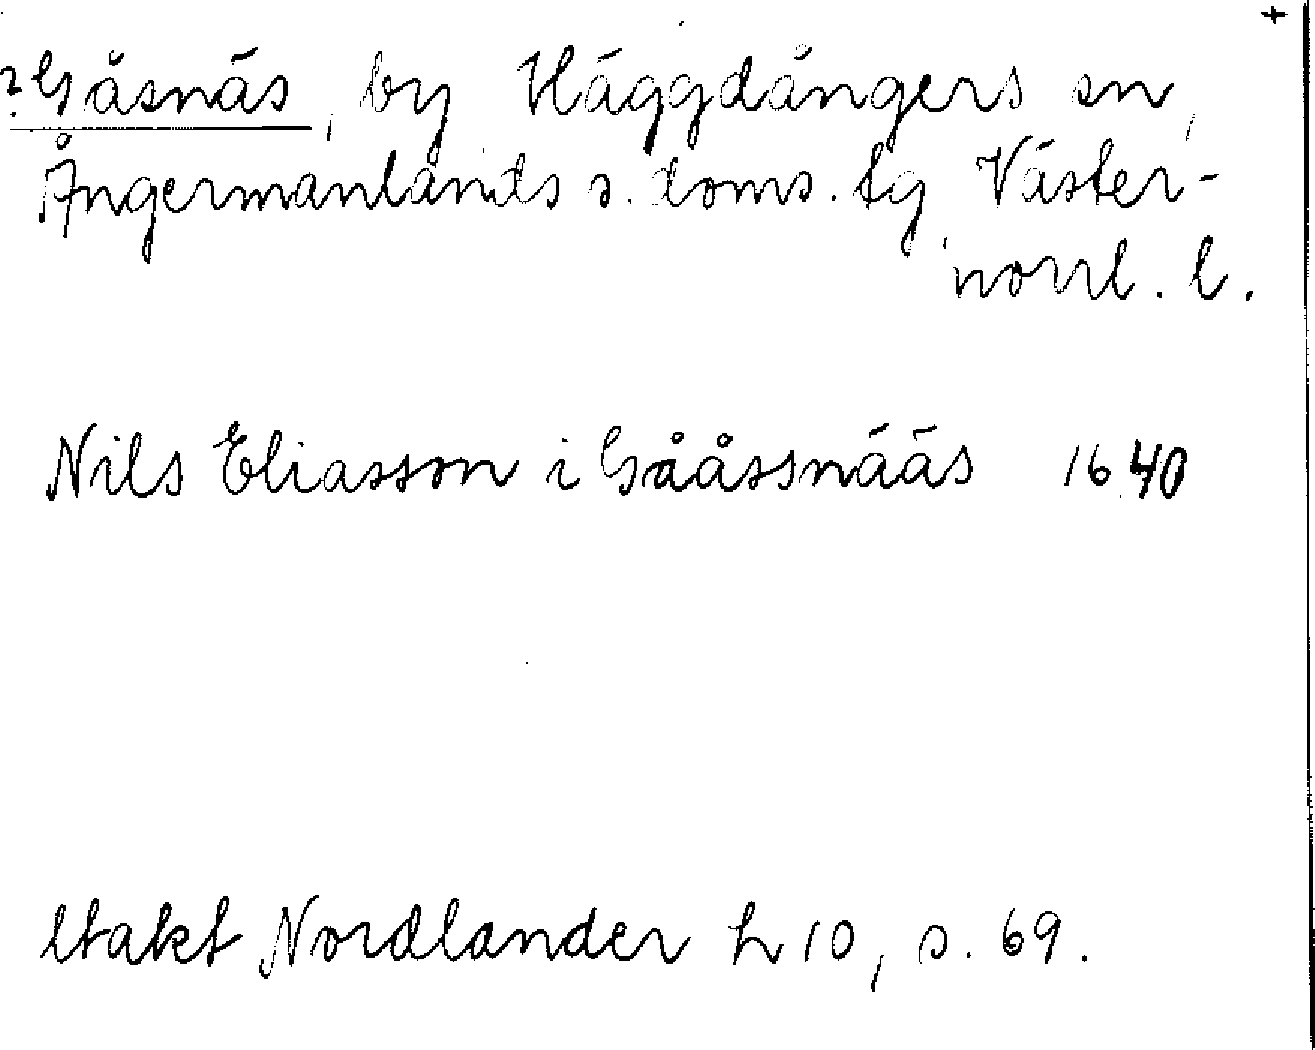 +
?Gåsnäs, by Häggdångers sn,
Ångermanlands s. doms. tg, Väster-
norrl. l.
Nils Eliasson i Gååssnääs 1640
Utakt Nordlander h 10, s. 69.